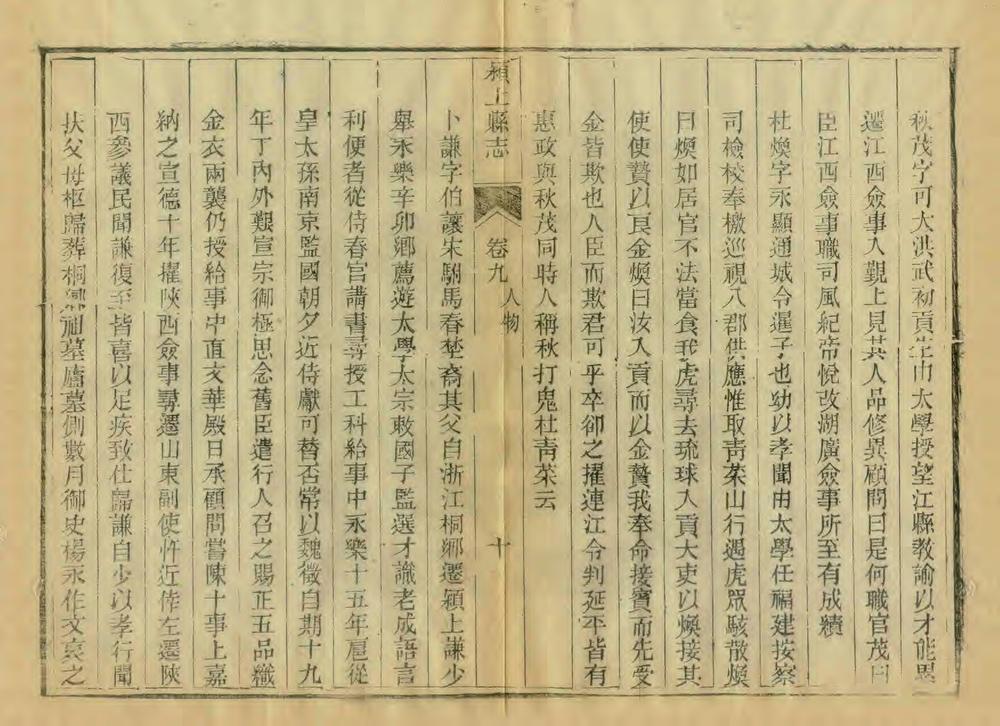 秋茂字可大洪武初貢生由太學授望江縣教諭以才能異
遷江西僉事入覲上見其人品修異顧問曰是何職官茂曰
臣江西僉事職司風紀帝悅改湖廣僉事所至有成績
杜煥字永顯通城令暹子也幼以孝聞由太學任福建按察
司檢校奉檄巡視八郡供應惟取靑菜山行遇虎眾駭散煥
曰煥如居官不法當食我虎尋去琉球入貢大吏以煥接其
使使贄以良金煥曰汝入貢而以金贄我奉命接賓而先受
金皆欺也人臣而欺君可乎卒卻之擢連江令判延平皆有
惠政與秋茂同時人稱秋打鬼杜靑菜云
潁上縣志
卷九
人物
十
卜謙字伯讓宋駙馬春埜裔其父自浙江桐鄉遷潁上謙少
舉永樂辛卯鄉薦遊太學太宗敕國子監選才識老成語言
利便者從侍春官講書尋授工科給事中永樂十五年扈從
皇太孫南京監國朝夕近侍獻可替否常以魏徵自期十九
年丁內外艱宣宗御極思念舊臣遣行人召之賜正五品織
金衣兩襲仍授給事中直文華殿日承顧問嘗陳十事上嘉
納之宣德十年擢陝西僉事尋遷山東副使忤近倖左遷陝
西參議民聞謙復至皆喜以足疾致仕歸謙自少以孝行聞
扶父母柩歸葬桐鄉祖墓廬墓側數月御史楊永作文哀之